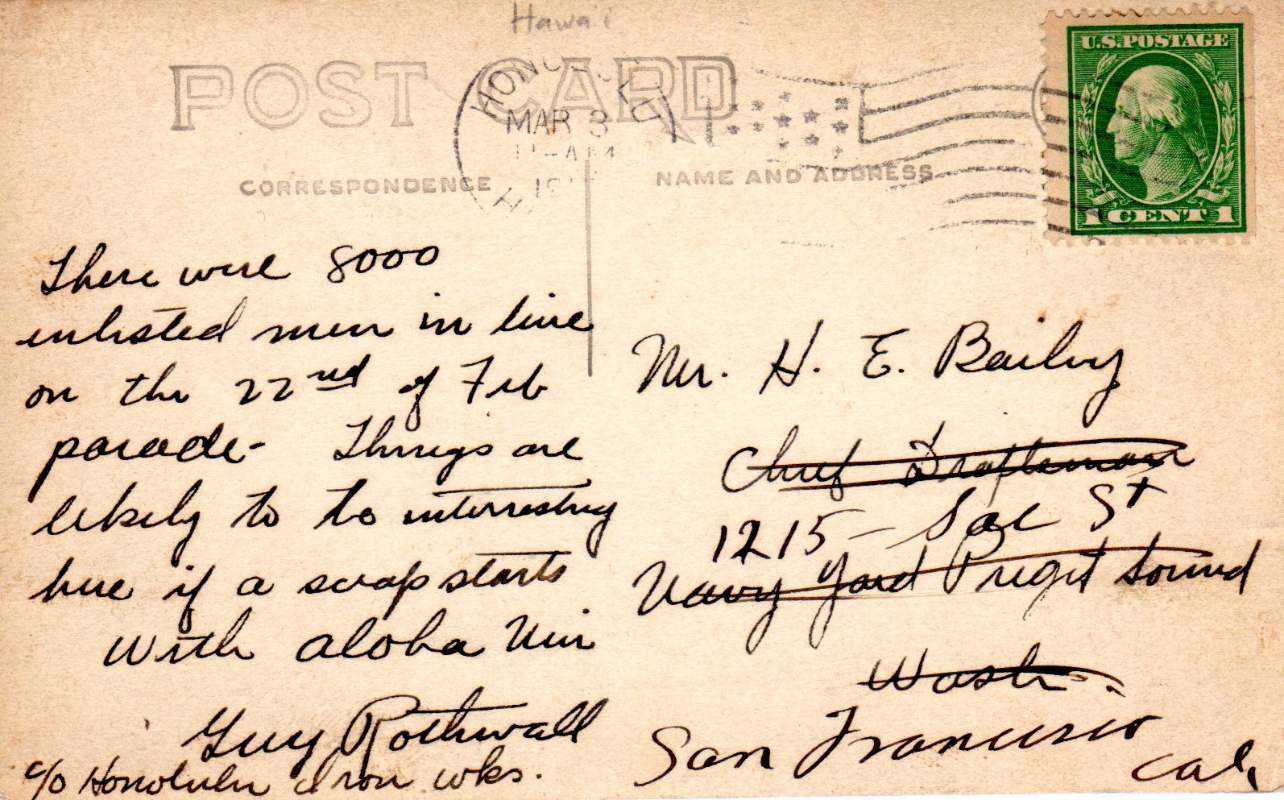 Hawai'i
POST CARD
HONOLULU
MAR 3
U.S. POSTAGE
1 CENT 1
CORRESPONDENCE
NAME AND ADDRESS
There were 8000
enlisted men in line
on the 22nd of Feb
parade- Things are
likely to to interesting
here if a scrap starts
With aloha Nui
Guy Rothwell
c/o Honolulu Iron wks.
Mr. H. E. Bailey
Chief Draftsman
1215 - Sac St
Navy Yard Puget Sound
Wash.
San Francisco
Cal